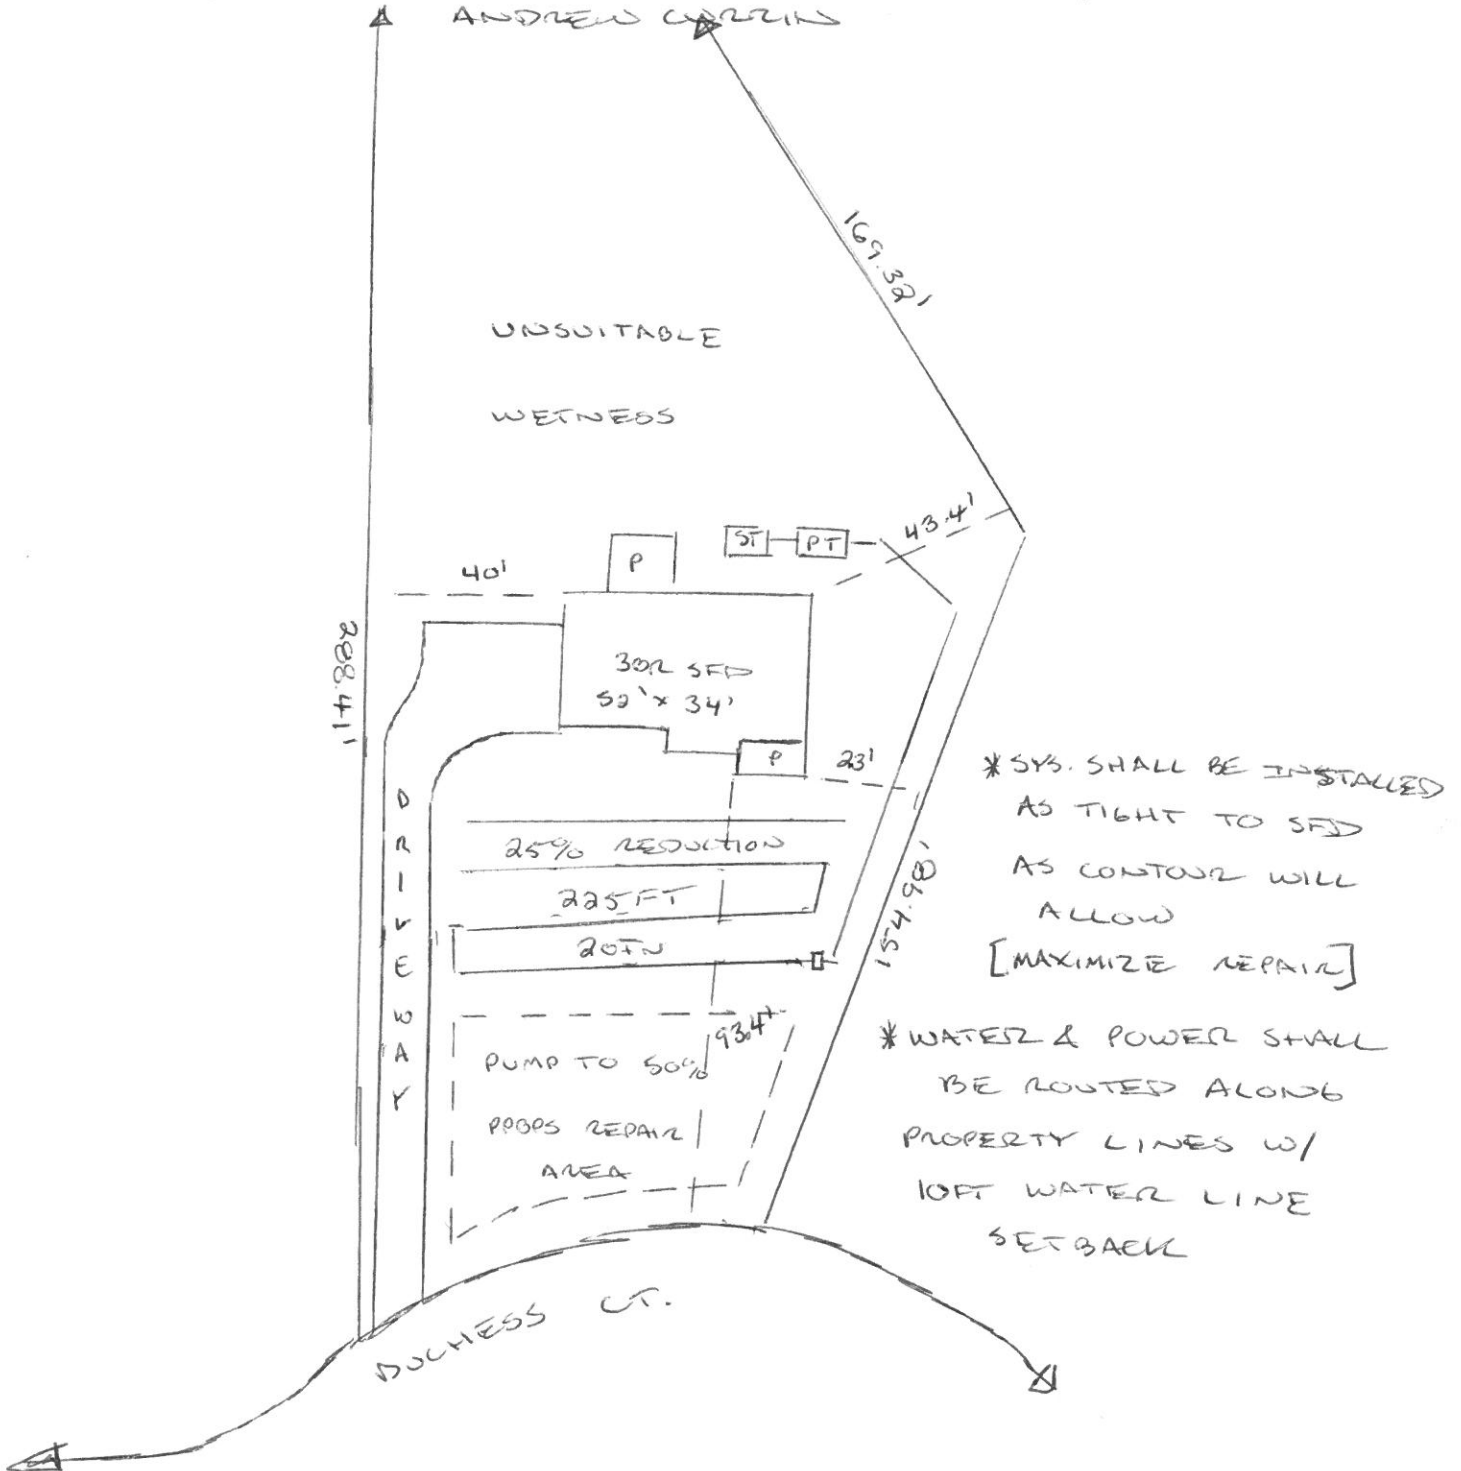 ANDREW CURRIN
169.32'
UNSUITABLE
WETNESS
43.4'
ST
PT
P
40'
288.41'
3BR SFD
52' x 34'
P
23'
DRIVEWAY
25% REDUCTION
225FT
20IN
154.98'
93.4'
PUMP TO 50%
PPBPS REPAIR
AREA
* SYS. SHALL BE INSTALLED
AS TIGHT TO SFD
AS CONTOUR WILL
ALLOW
[MAXIMIZE REPAIR]
* WATER & POWER SHALL
BE ROUTED ALONG
PROPERTY LINES W/
10FT WATER LINE
SETBACK
DUCHESS CT.